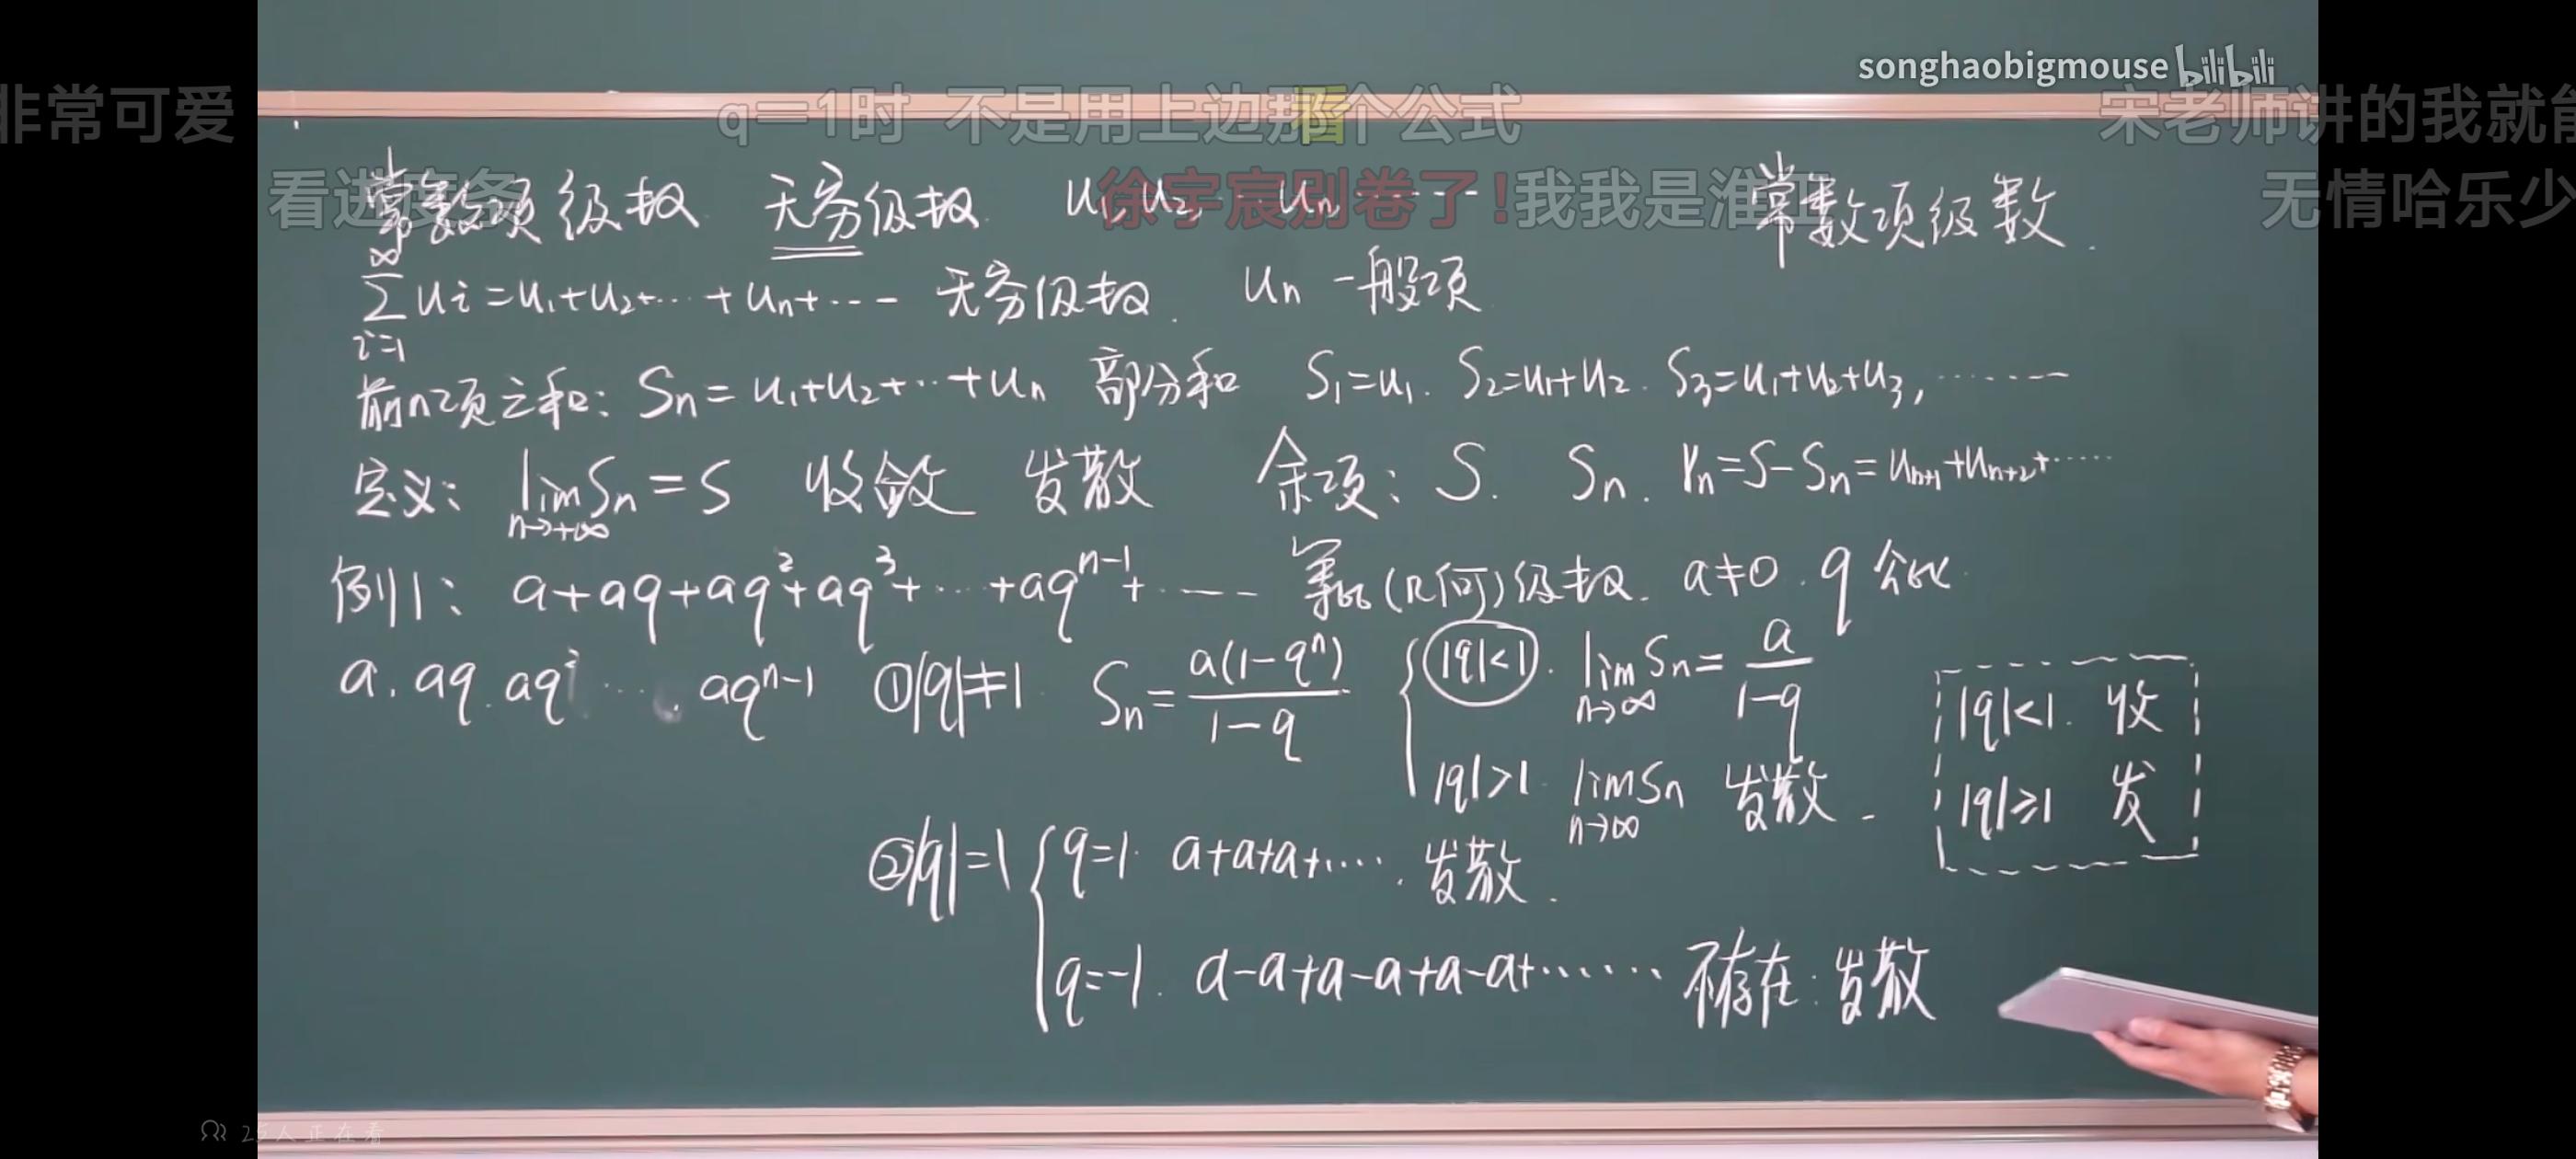 songhaobigmouse bilibili
非常可爱
q=1时 不是用上边那个公式
宋老师讲的我就能
看进度条
徐宇宸别卷了!
我我是淮
无情哈乐少
常数项级数 无穷级数 u₁, u₂, … uₙ ……
常数项级数.
∞
∑ uᵢ = u₁+u₂+…+uₙ+… 无穷级数. uₙ 一般项
i=1
前n项之和: Sₙ = u₁+u₂+…+uₙ 部分和 S₁=u₁. S₂=u₁+u₂. S₃=u₁+u₂+u₃, ……
定义: lim Sₙ = S 收敛 发散 余项: S. Sₙ. rₙ=S-Sₙ=uₙ₊₁+uₙ₊₂+……
n→+∞
例1: a+aq+aq²+aq³+…+aqⁿ⁻¹+…… 等比(几何)级数. a≠0. q 公比
a. aq. aq² …. aqⁿ⁻¹ ①|q|≠1 Sₙ = a(1-qⁿ)/(1-q) { |q|<1. lim Sₙ = a/(1-q)
n→∞
|q|>1. lim Sₙ 发散.
n→∞
|q|<1. 收
|q|≥1 发
②|q|=1 { q=1. a+a+a+…. 发散.
q=-1. a-a+a-a+a-a+…… 不存在. 发散
25人正在看